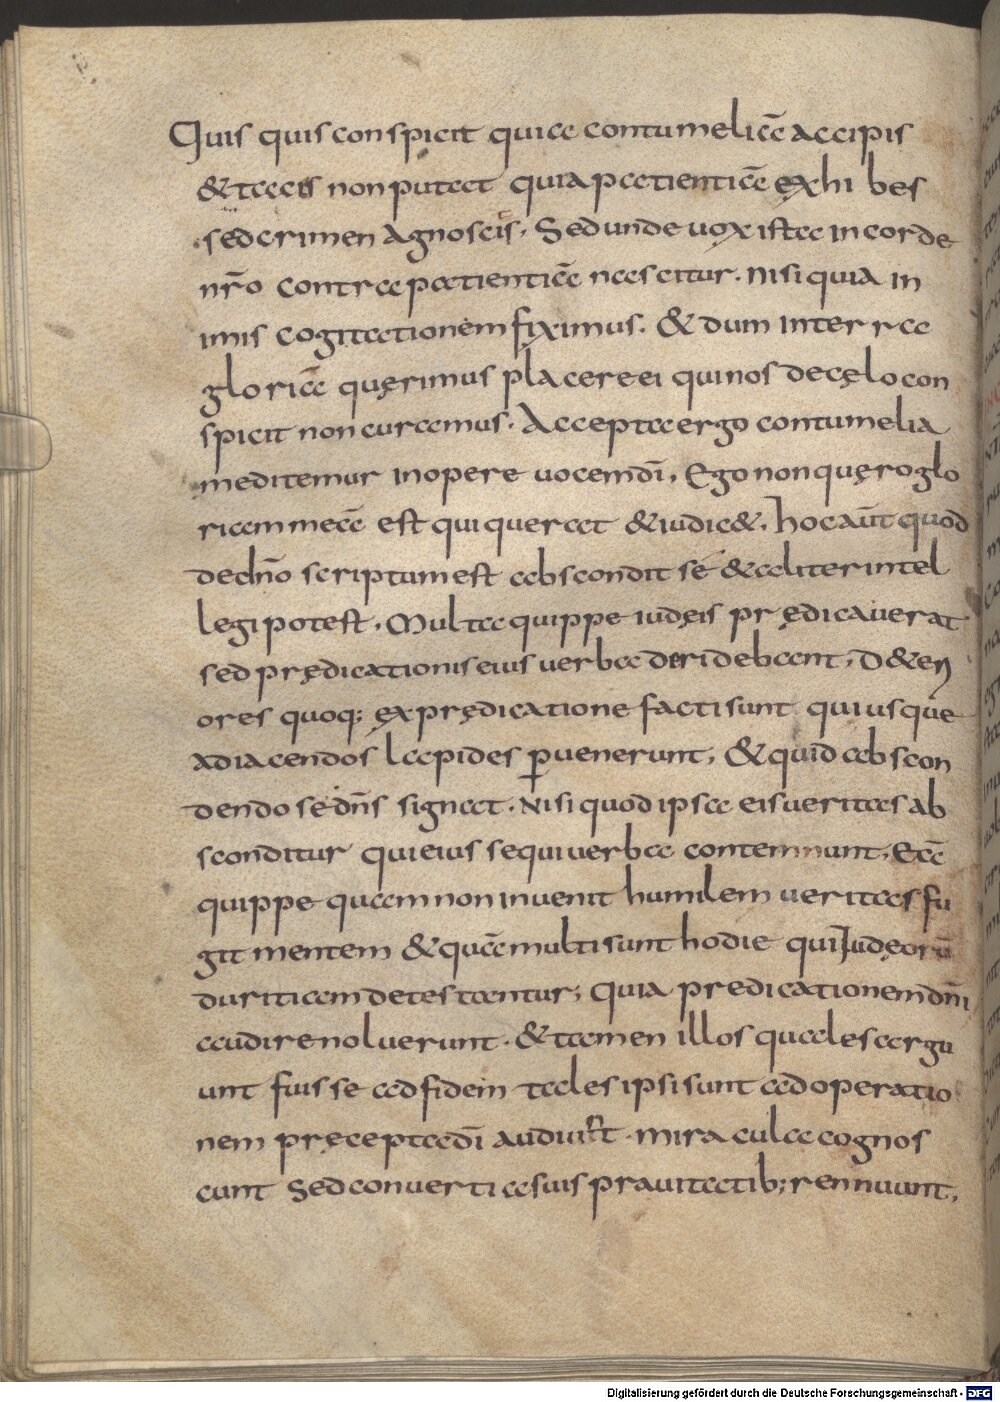 Quis quis conspicit quia contumeliā accipis
& tacis non putat quia patientiā exhi bes
sed crimen agnoscis. Sed unde uox ista in corde
nr̄o contra patientiā nascitur. nisi quia in
imis cogitationem fiximus. & dum inter ra
gloriā quęrimus placere ei qui nos de cęlo con
spicit non curamus. Accepta ergo contumelia
meditemur in opere uocem dī. Ego non quęro glo
riam meā est qui querat & iudic&. hoc aūt quod
de dn̄o scriptum est abscondit sé & aliter intel
legi potest. Multa quippe iudęis prędicauerat
sed prędicationis eius uerba deridebant. D& en
ores quoq; ex prędicatione facti sunt qui usque
ad iacendos lapides ꝑuenerunt. & quid abscon
dendo se dn̄s signat. Nisi quod ipsa eis ueritas ab
sconditur qui eius sequi uerba contemnunt. Eā
quippe quam non inuenit humilem ueritas fu
git mentem & quā multi sunt hodie qui Iudęorū
duritiam detestantur; Quia predicationem dn̄i
audire noluerunt. & tamen illos quales argu
unt fuisse ad fidem tales ipsi sunt ad operatio
nem pręcepta dī audiur̄t. miracula cognos
cunt Sed conuerti a suis prauitatib; rennuunt.
Digitalisierung gefördert durch die Deutsche Forschungsgemeinschaft - DFG